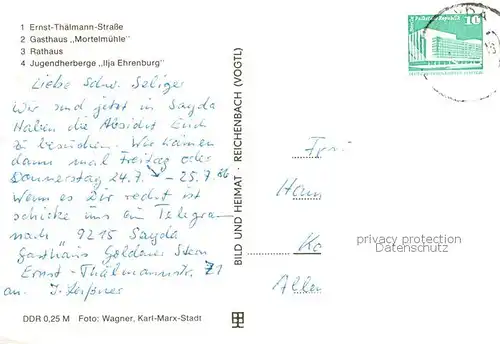 1 Ernst-Thälmann-Straße
2 Gasthaus „Mortelmühle"
3 Rathaus
4 Jugendherberge „Ilja Ehrenburg"
Liebe Schw. Seliger
Wir sind jetzt in Sayda
Haben die Absicht Euch
zu besuchen. Wir kämen
dann mal Freitag oder
Donnerstag 24.7. – 25.7.86
Wenn es Dir recht ist
schicke uns ein Telegramm
nach „9215 Sayda
Gasthaus Goldener Stern
Ernst-Thälmannstr. 71
an.
DDR 0,25 M Foto: Wagner, Karl-Marx-Stadt
BILD UND HEIMAT · REICHENBACH (VOGTL)
10
Frau
Hann
Ko
Allen
privacy protection
Datenschutz